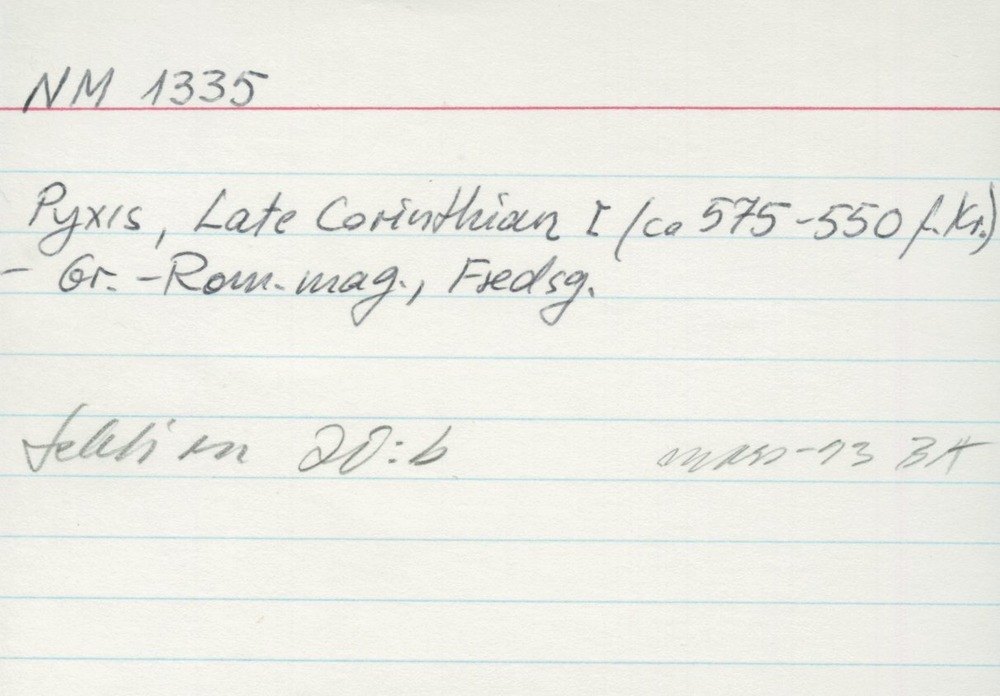 NM 1335
Pyxis, Late Corinthian I (ca 575-550 f.Kr.)
- Gr.-Rom. mag., Fredsg.
Sektion 20:b mars-93 BA